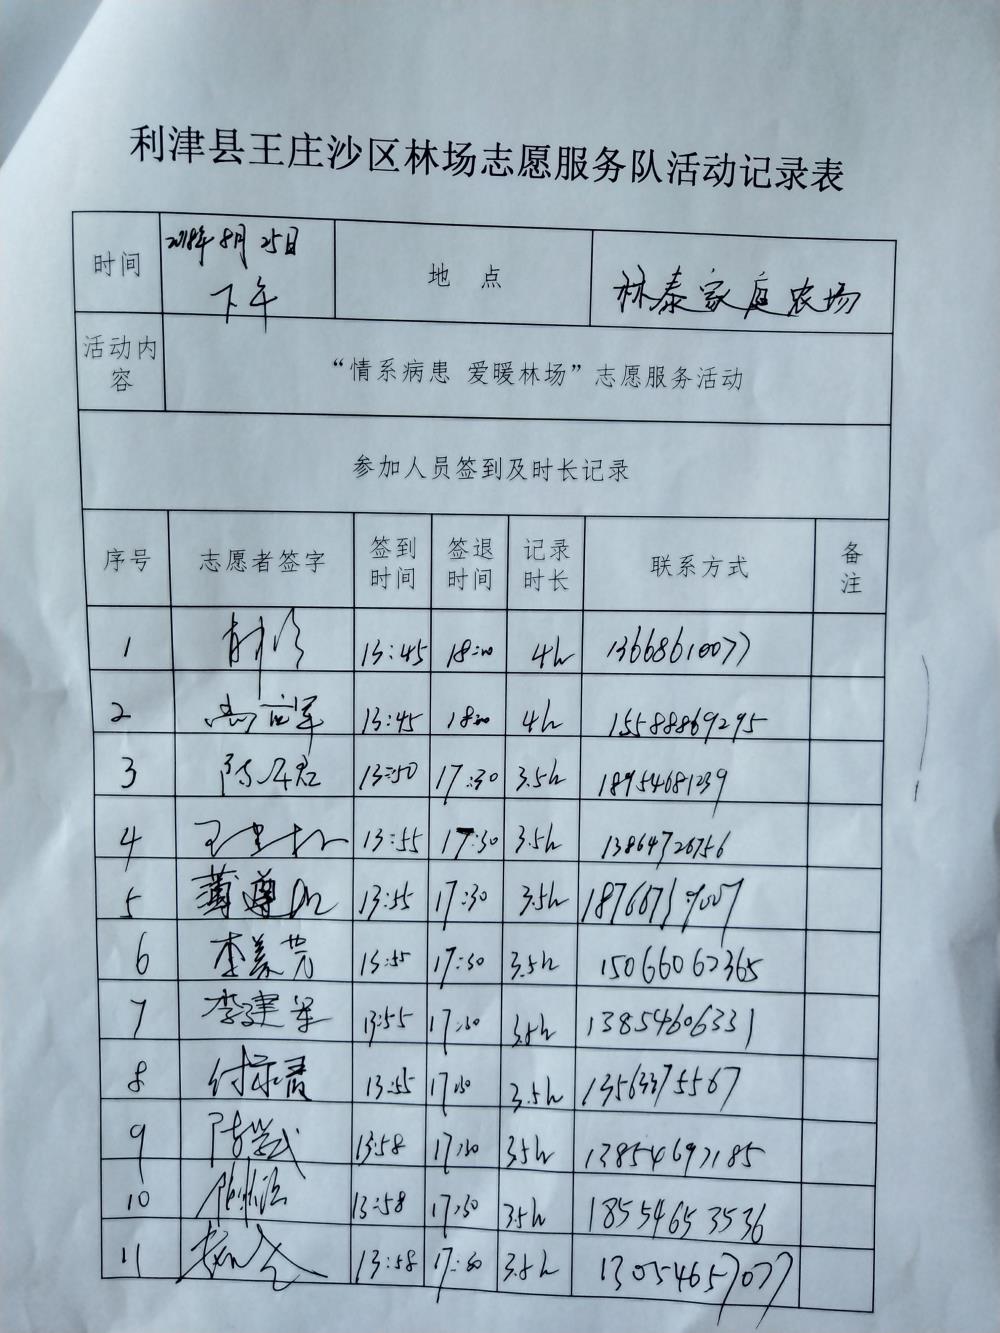 利津县王庄沙区林场志愿服务队活动记录表
时间 2018年8月25日 下午 地点 林泰家庭农场
活动内容 “情系病患 爱暖林场”志愿服务活动
参加人员签到及时长记录
序号 志愿者签字 签到时间 签退时间 记录时长 联系方式 备注
1 13:45 18:00 4h 13668610077
2 13:45 18:00 4h 15588869295
3 13:50 17:30 3.5h 18954681239
4 13:55 17:30 3.5h 13864726756
5 13:55 17:30 3.5h
6 李美芳 13:55 17:30 3.5h 15066062365
7 李建军 13:55 17:30 3.5h 13854606331
8 13:55 17:30 3.5h 13563375567
9 13:58 17:30 3.5h 13854697185
10 13:58 17:30 3.5h 18554653536
11 13:58 17:30 3.5h 13054657077